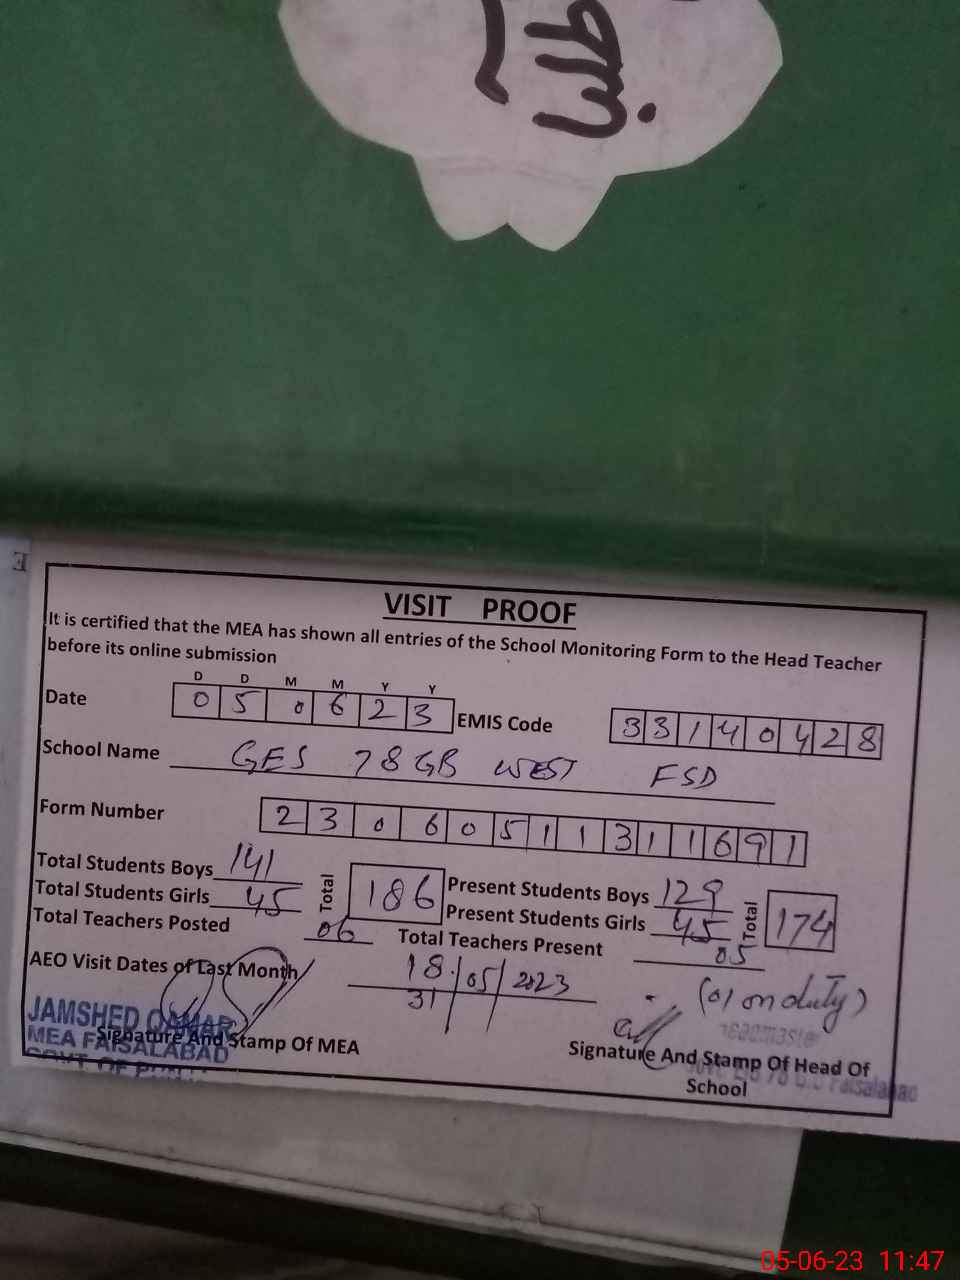 VISIT PROOF
It is certified that the MEA has shown all entries of the School Monitoring Form to the Head Teacher
before its online submission
D D M M Y Y
Date 0 5 0 6 2 3 EMIS Code 3 3 1 4 0 4 2 8
School Name GES 78 GB WEST FSD
Form Number 2 3 0 6 0 5 1 1 3 1 1 6 9 1
Total Students Boys 141 Total 186 Present Students Boys 129 Total 174
Total Students Girls 45 Present Students Girls 45
Total Teachers Posted 06 Total Teachers Present 05
AEO Visit Dates of Last Month 18 / 05 / 2023 (01 on duty)
31
JAMSHED QAMAR
MEA FAISALABAD
Signature And Stamp Of MEA
Headmaster
Signature And Stamp Of Head Of
School
Faisalabad
05-06-23 11:47